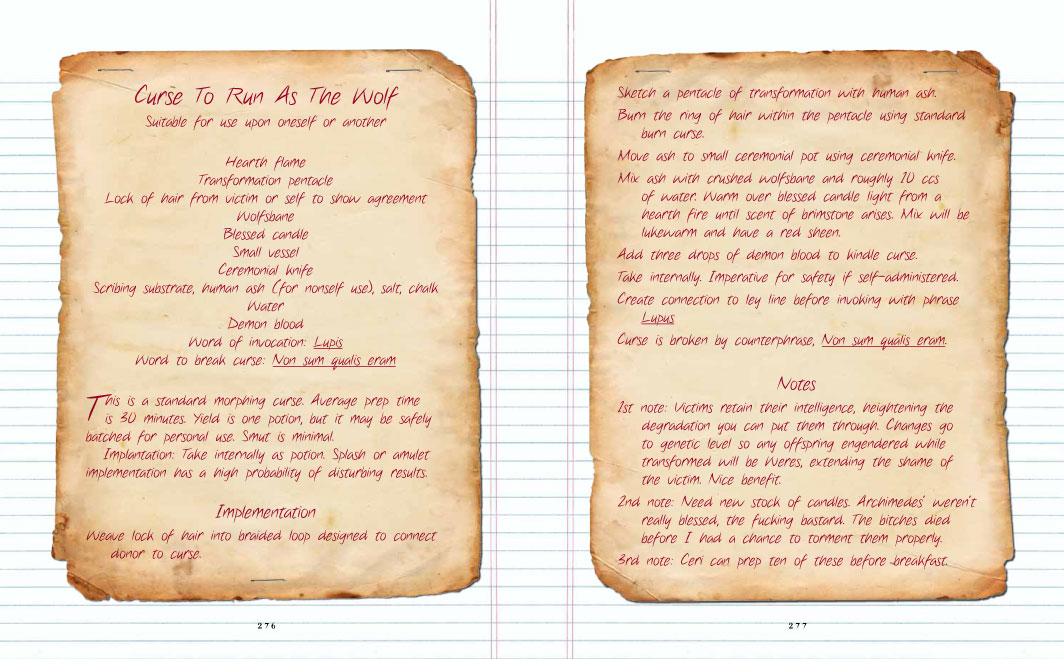 Curse To Run As The Wolf
Suitable for use upon oneself or another
Hearth flame
Transformation pentacle
Lock of hair from victim or self to show agreement
Wolfsbane
Blessed candle
Small vessel
Ceremonial knife
Scribing substrate, human ash (for nonself use), salt, chalk
Water
Demon blood
Word of invocation: Lupis
Word to break curse: Non sum qualis eram
This is a standard morphing curse. Average prep time
is 30 minutes. Yield is one potion, but it may be safely
batched for personal use. Smut is minimal.
Implantation: Take internally as potion. Splash or amulet
implementation has a high probability of disturbing results.
Implementation
Weave lock of hair into braided loop designed to connect
donor to curse.
276
Sketch a pentacle of transformation with human ash.
Burn the ring of hair within the pentacle using standard
burn curse.
Move ash to small ceremonial pot using ceremonial knife.
Mix ash with crushed wolfsbane and roughly 10 ccs
of water. Warm over blessed candle light from a
hearth fire until scent of brimstone arises. Mix will be
lukewarm and have a red sheen.
Add three drops of demon blood to kindle curse.
Take internally. Imperative for safety if self-administered.
Create connection to ley line before invoking with phrase
Lupus
Curse is broken by counterphrase, Non sum qualis eram.
Notes
1st note: Victims retain their intelligence, heightening the
degradation you can put them through. Changes go
to genetic level so any offspring engendered while
transformed will be Weres, extending the shame of
the victim. Nice benefit.
2nd note: Need new stock of candles. Archimedes' weren't
really blessed, the fucking bastard. The bitches died
before I had a chance to torment them properly.
3rd note: Ceri can prep ten of these before breakfast.
277